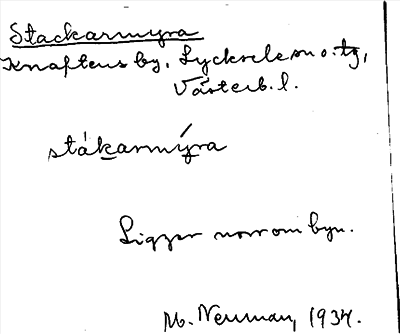 Stackarmyra
Knaftens by, Lycksele sn o. tg,
Västerb. l.
stákarmýra
Ligger norr om byn.
M. Neuman, 1937.